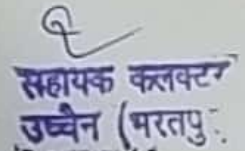 सहायक कलक्टर
उच्चैन (भरतपु